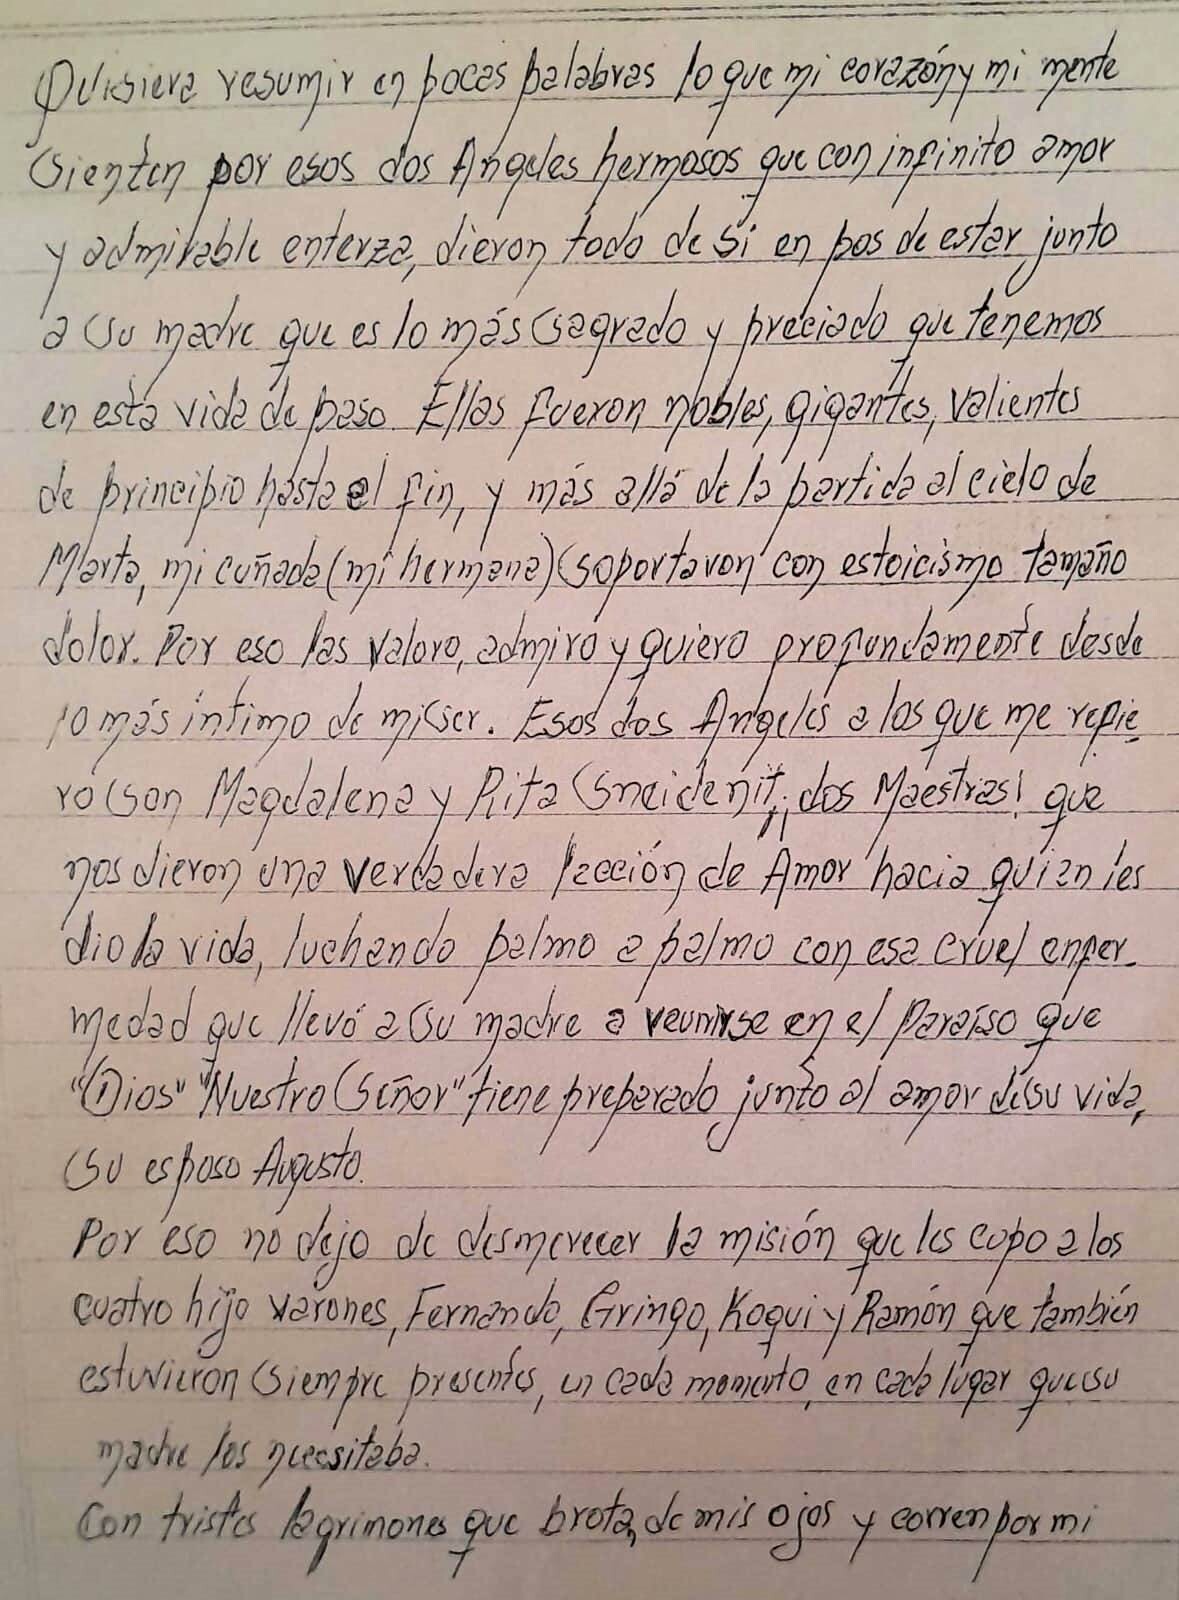 Quisiera resumir en pocas palabras lo que mi corazón y mi mente
sienten por esos dos Angeles hermosos que con infinito amor
y admirable enterza, dieron todo de sí en pos de estar junto
a su madre que es lo más sagrado y preciado que tenemos
en esta vida de paso. Ellas fueron nobles, gigantes, valientes
de principio hasta el fin, y más allá de la partida al cielo de
Marta, mi cuñada (mi hermana) soportaron con estoicismo tamaño
dolor. Por eso las valoro, admiro y quiero profundamente desde
lo más íntimo de mi ser. Esos dos Angeles a los que me refie_
ro son Magdalena y Rita ¡dos Maestras! que
nos dieron una verdadera lección de Amor hacia quien les
dio la vida, luchando palmo a palmo con esa cruel enfer_
medad que llevó a su madre a reunirse en el Paraíso que
"Dios" "Nuestro Señor" tiene preparado junto al amor de su vida,
su esposo Augusto.
Por eso no dejo de desmerecer la misión que les cupo a los
cuatro hijo varones, Fernando, Gringo, Koqui y Ramón que también
estuvieron siempre presentes, en cada momento, en cada lugar que su
madre los necesitaba.
Con tristes lagrimones que brota, de mis ojos y corren por mi